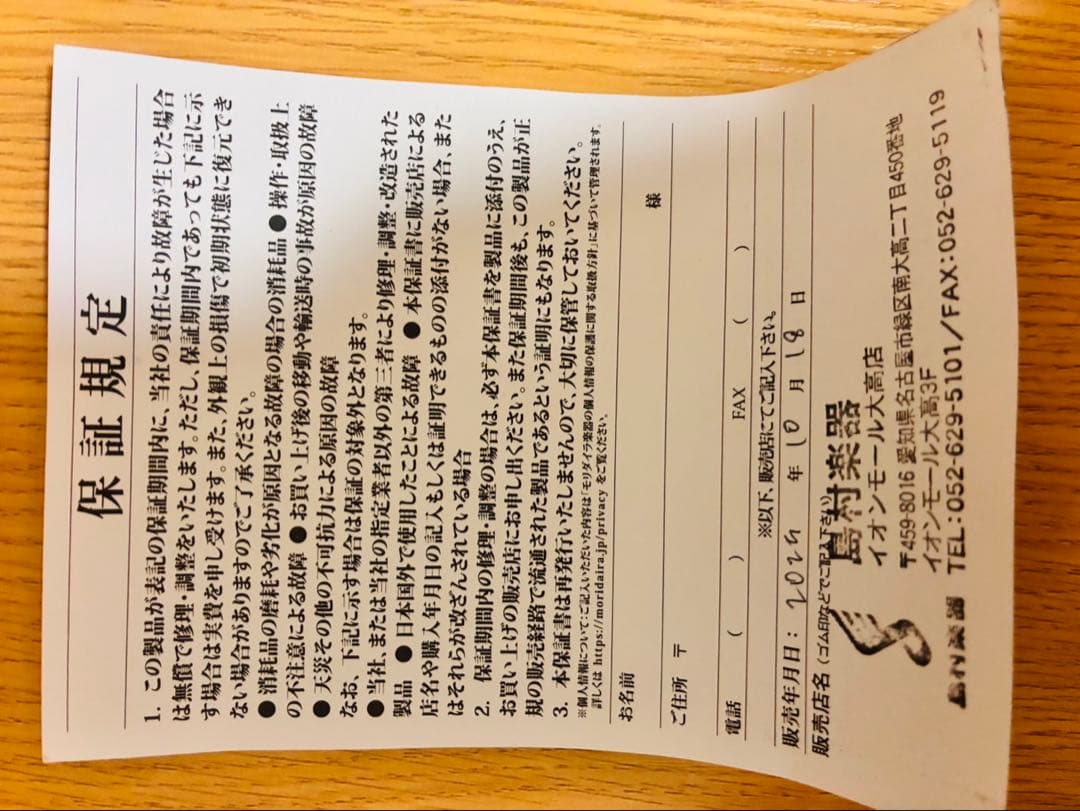 保証規定
1. この製品が表記の保証期間内に、当社の責任により故障が生じた場合
は無償で修理・調整をいたします。ただし、保証期間内であっても下記に示
す場合は実費を申し受けます。また、外観上の損傷で初期状態に復元でき
ない場合がありますのでご了承ください。
●消耗品の磨耗や劣化が原因となる故障の場合の消耗品 ●操作・取扱上
の不注意による故障 ●お買い上げ後の移動や輸送時の事故が原因の故障
●天災その他の不可抗力による原因の故障
なお、下記に示す場合は保証の対象外となります。
●当社、または当社の指定業者以外の第三者により修理・調整・改造された
製品 ●日本国外で使用したことによる故障 ●本保証書に販売店による
店名や購入年月日の記入もしくは証明できるものの添付がない場合、また
はそれらが改ざんされている場合
2. 保証期間内の修理・調整の場合は、必ず本保証書を製品に添付のうえ、
お買い上げの販売店にお申し出ください。また保証期間後も、この製品が正
規の販売経路で流通された製品であるという証明にもなります。
3. 本保証書は再発行いたしませんので、大切に保管しておいてください。
※個人情報について:ご記入いただいた内容は「モリダイラ楽器の個人情報の保護に関する取扱方針」に基づいて管理されます。
詳しくは https://moridaira.jp/privacy をご覧ください。
お名前 様
ご住所 〒
電話 ( ) FAX ( )
※以下、販売店にてご記入下さい。
販売年月日: 2024 年 10 月 18 日
販売店名(ゴム印などでご記入下さい)
島村楽器
イオンモール大高店
〒459-8016 愛知県名古屋市緑区南大高二丁目450番地
イオンモール大高3F
島村楽器 TEL:052-629-5101/FAX:052-629-5119